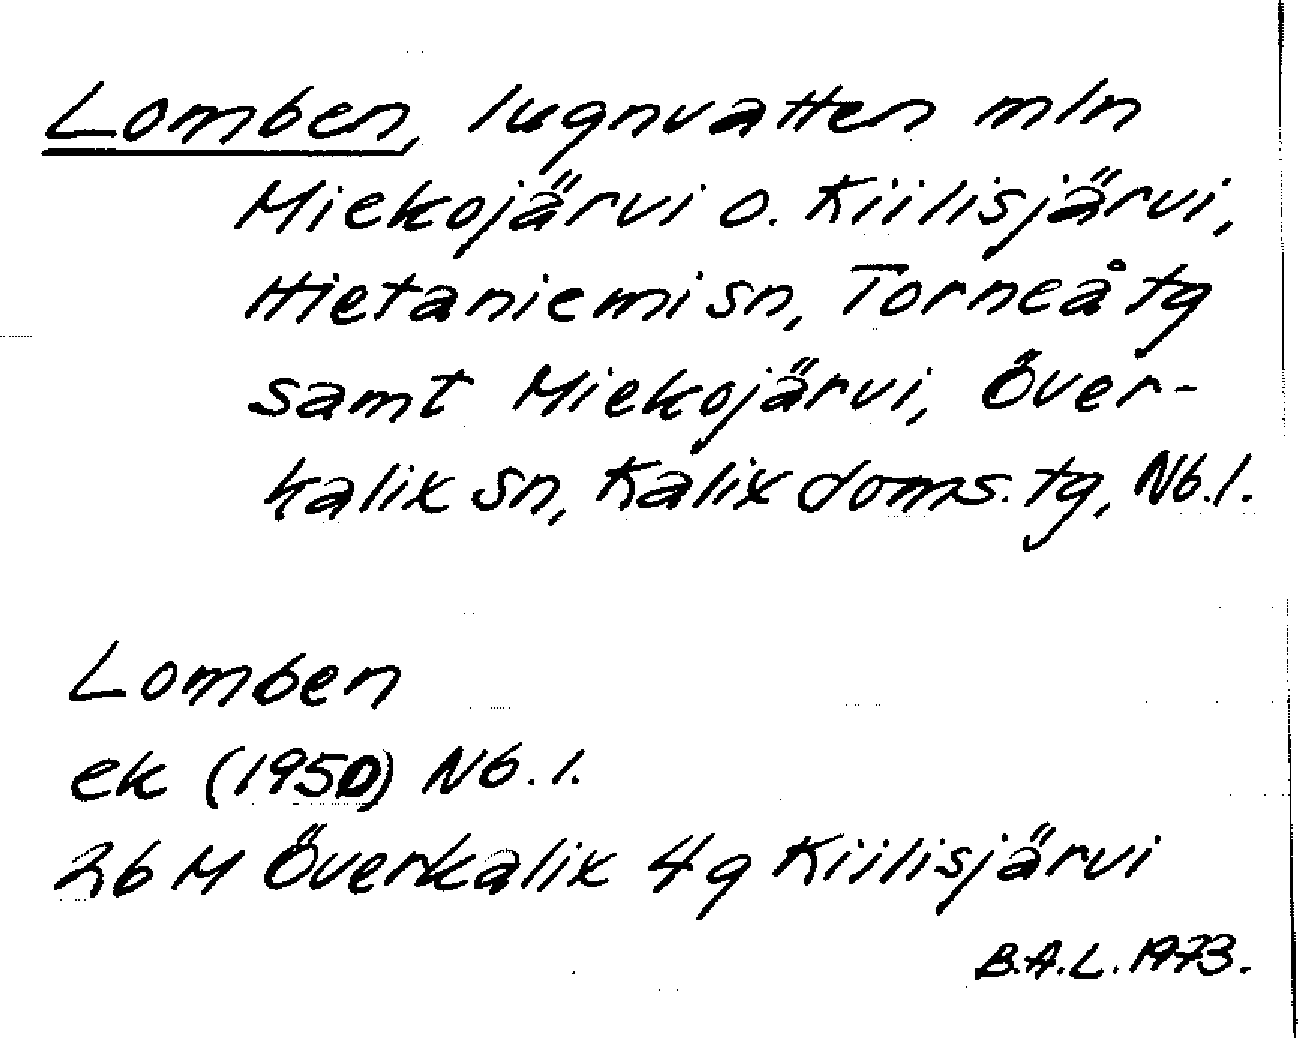 Lomben, lugnvatten mln
Miekojärvi o. Kiilisjärvi,
Hietaniemi sn, Torneå tg
samt Miekojärvi, Över-
kalix sn, Kalix doms. tg, Nb. l.
Lomben
ek (1950) Nb. l.
26 M Överkalix 4g Kiilisjärvi
B.A.L. 1973.